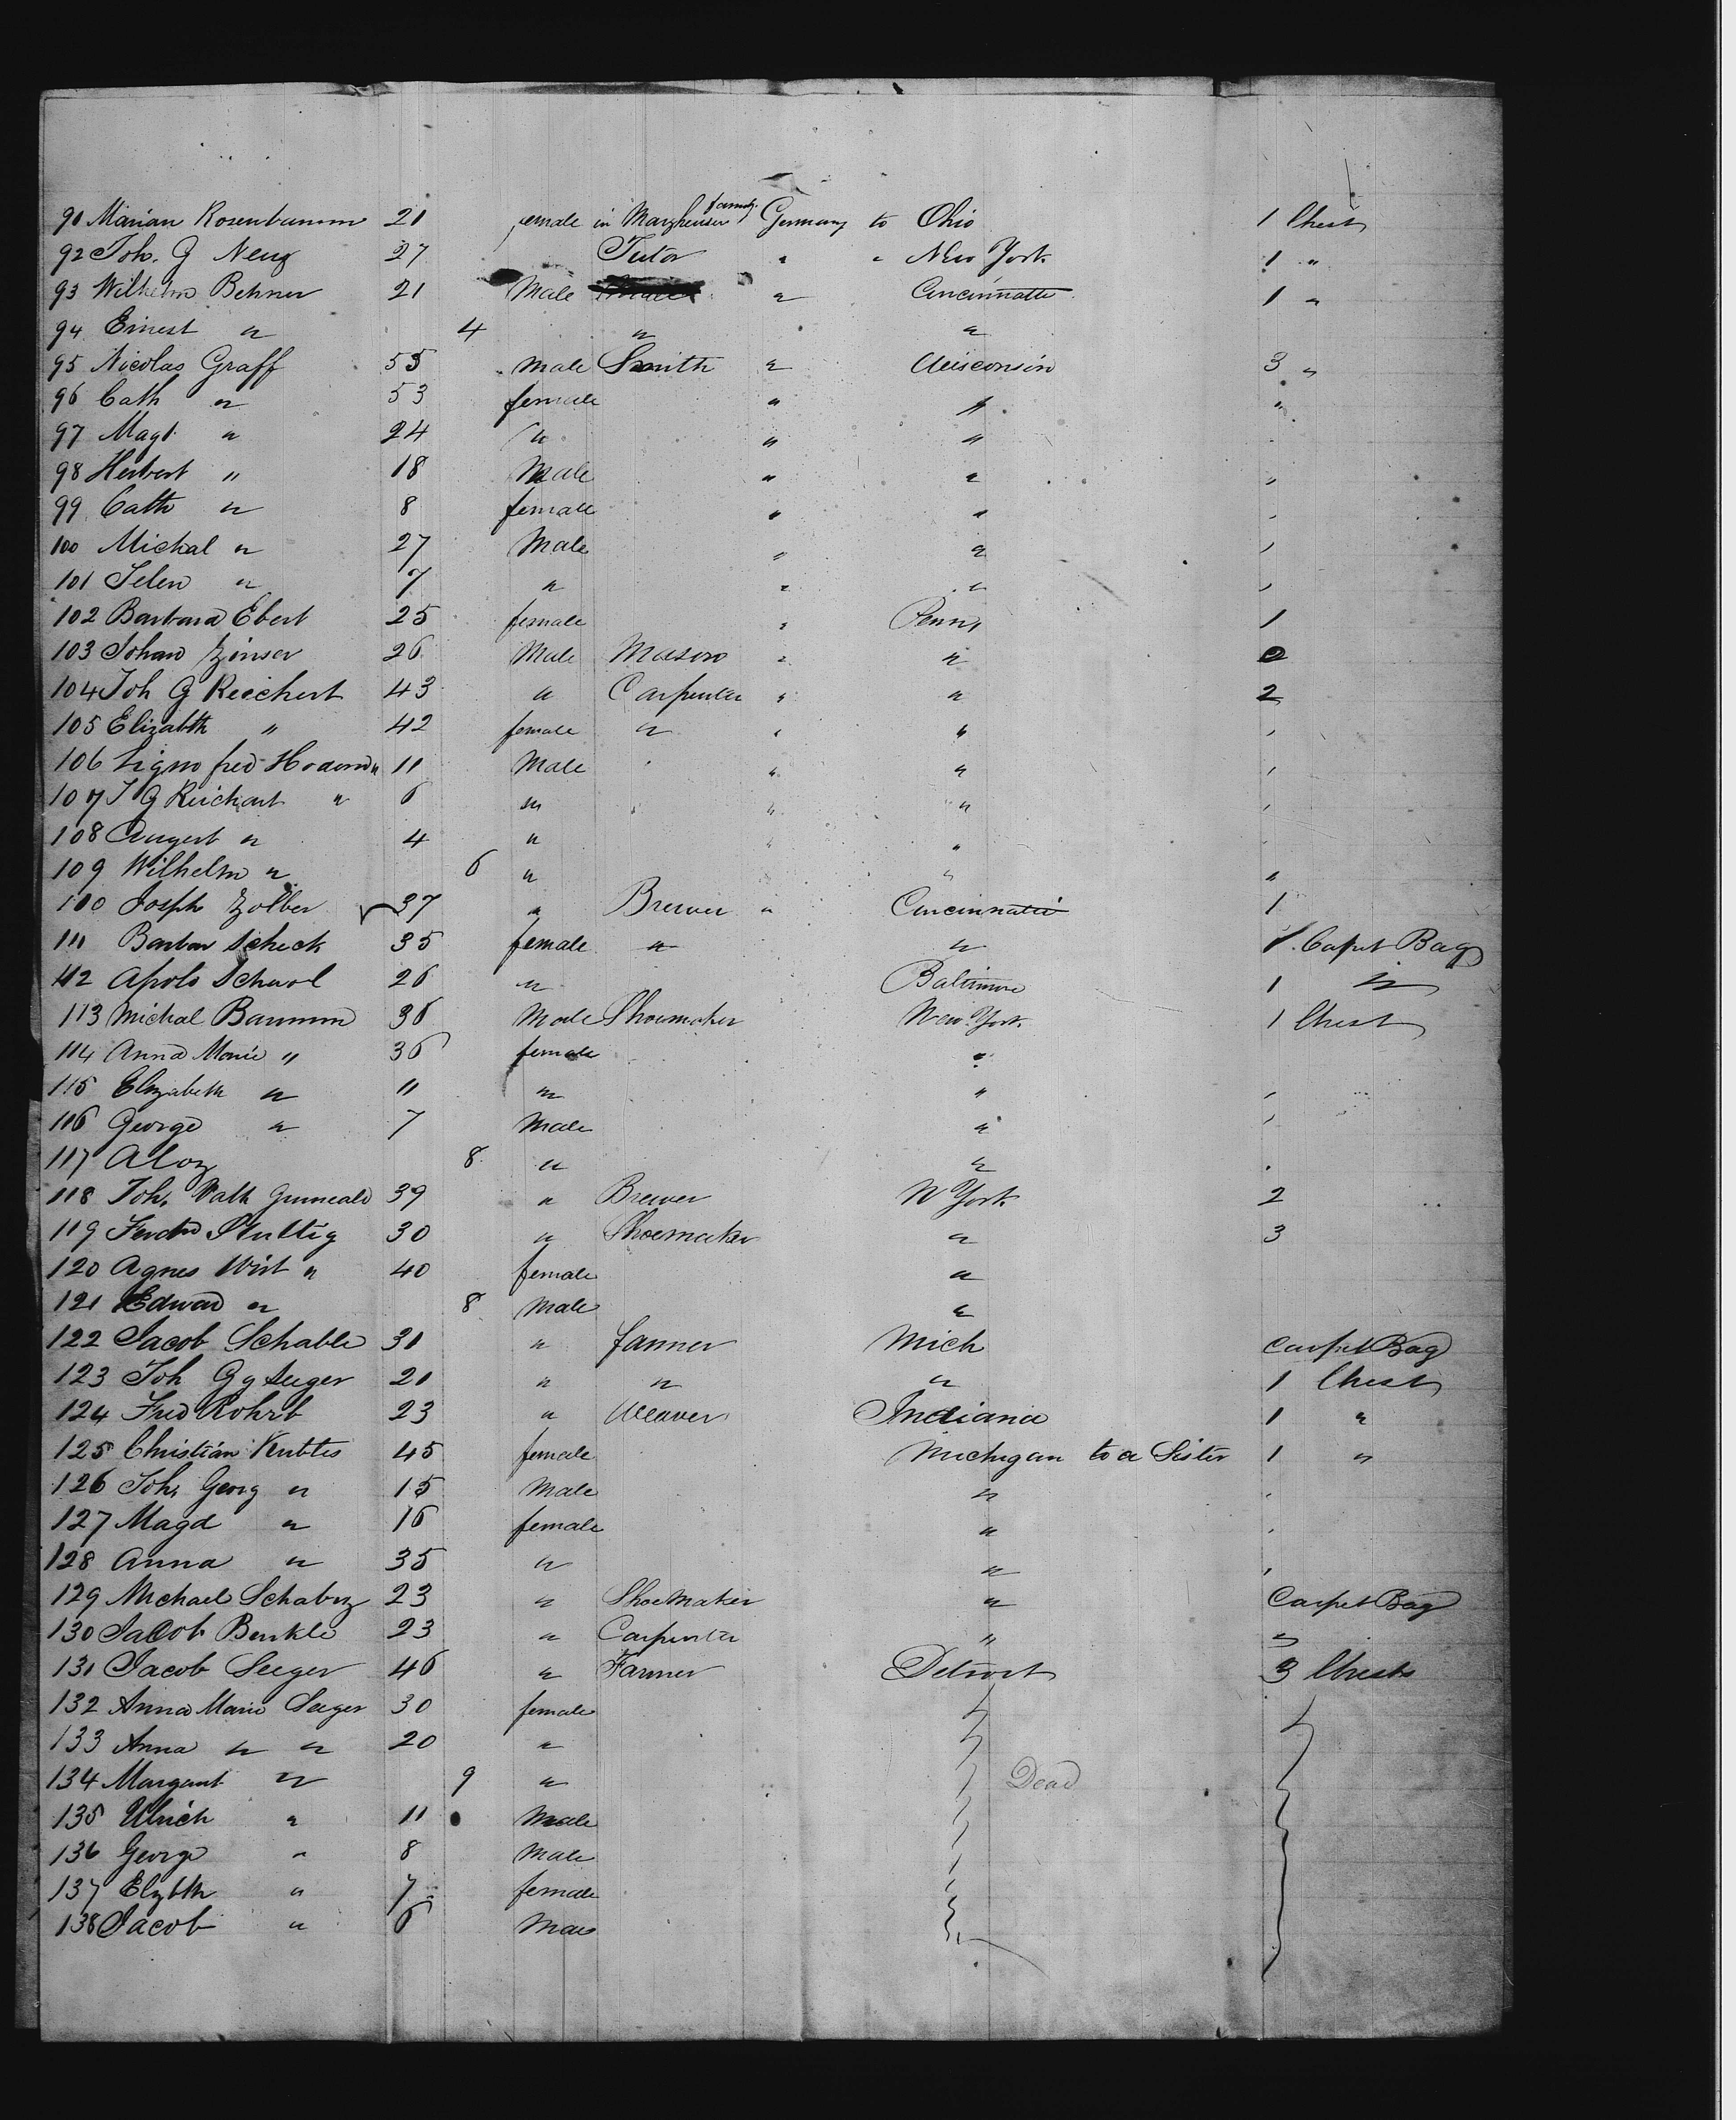 91 Marian Rosenbaumm 21 female in Marzheuser family Germany to Ohio 1 Chest
92 Joh. G Neug 27 Tutor " " New York 1 "
93 Wilhelm Behner 21 Male " Cincinnatti 1 "
94 Ernest " 4 " "
95 Nicolas Graff 55 Male Smith " Wisconsin 3 "
96 Cath " 53 female " " "
97 Magt " 24 " " "
98 Herbert " 18 Male " " "
99 Cath " 8 female " " "
100 Michal " 27 Male " " "
101 Selen " 7 " " " "
102 Barbara Ebert 25 female " Penn, 1
103 Johan Zinser 26 Male Mason " " 2
104 Joh G Reichert 43 " Carpenter " " 2
105 Elizabth " 42 female " " " "
106 11 Male " " "
107 J G Reichart " 6 " " " "
108 Augest " 4 " " "
109 Wilhelm " 6 " " "
110 Josph Zolber 37 " Brewer " Cincinnatti 1
111 Barbar Scheck 35 female " " 1 Carpet Bag
112 Apolo 26 " Baltimore 1 "
113 Michal Baumm 36 Male Shoemaker New York 1 Chest
114 Anna Marie " 36 female "
115 Elizabeth " 11 " " "
116 George " 7 Male " "
117 Aloz 8 " "
118 Joh, Math 39 " Brewer N York 2
119 Ferdn Stultig 30 " Shoemaker " 3
120 Agnes Wirt " 40 female "
121 Edward " 8 Male "
122 Jacob Schable 31 " farmer Mich Carpet Bag
123 Joh Gg Seeger 21 " " " 1 Chest
124 Fred Rohrb 23 " Weaver Indiana 1 "
125 Christian Kubtis 45 female Michigan to a Sister 1 "
126 Joh, Georg " 15 Male " "
127 Magd " 16 female " "
128 Anna " 35 " " "
129 Michael Schabuz 23 " Shoemaker " Carpet Bag
130 Jacob Benkle 23 " Carpenter " "
131 Jacob Seeger 46 " Farmer Detroit 3 Chests
132 Anna Marie Seeger 30 female " "
133 Anna " " 20 " " "
134 Margaret " 9 " " Dead "
135 Ulrich " 11 Male " "
136 George " 8 Male " "
137 Elizbth " 7 female " "
138 Jacob " 6 Male " "